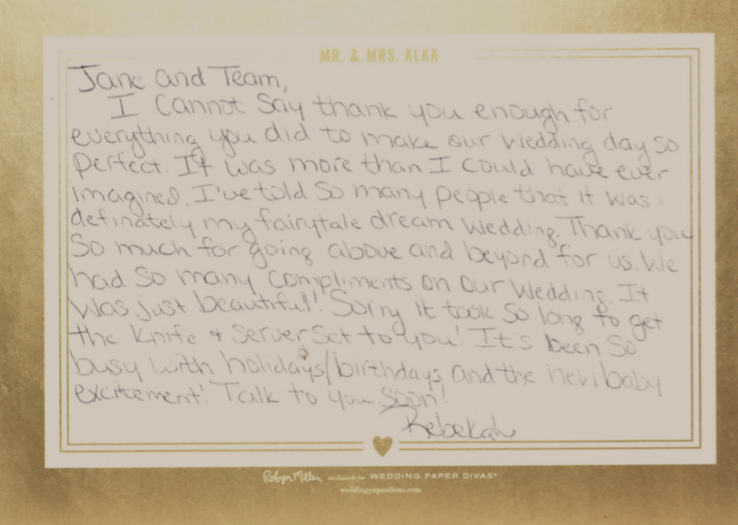 MR. & MRS. ALKA
Jane and Team,
I cannot say thank you enough for
everything you did to make our wedding day so
perfect. It was more than I could have ever
imagined. I've told so many people that it was
definately my fairytale dream wedding. Thank you
so much for going above and beyond for us. We
had so many compliments on our wedding. It
was just beautiful! Sorry it took so long to get
the knife & server set to you! It's been so
busy with holidays/birthdays and the new baby
excitement! Talk to you soon!
Rebekah
Robyn Miller exclusively for WEDDING PAPER DIVAS®
weddingpaperdivas.com